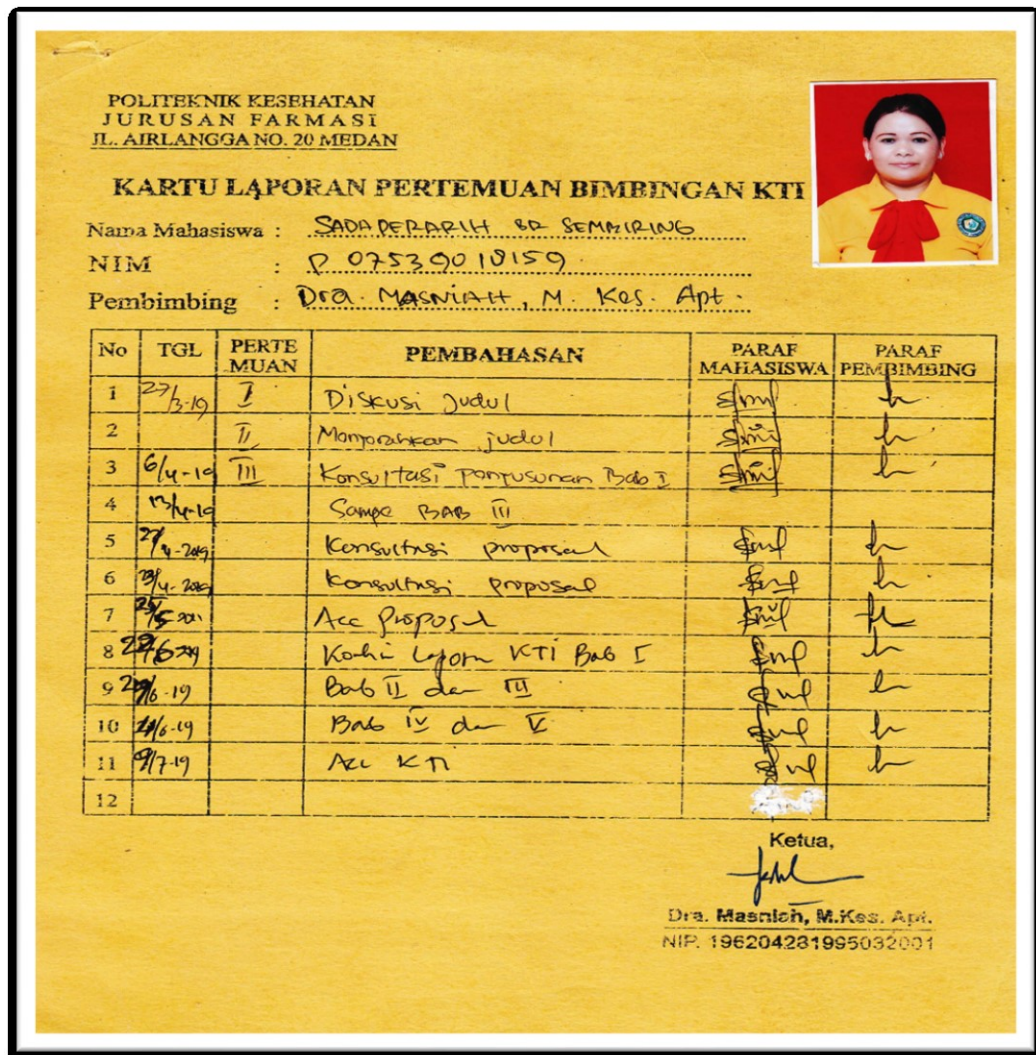 POLITEKNIK KESEHATAN
JURUSAN FARMASI
JL. AIRLANGGA NO. 20 MEDAN
KARTU LAPORAN PERTEMUAN BIMBINGAN KTI
Nama Mahasiswa : SADAPERARIH BR SEMBIRING
NIM : P 07539018159
Pembimbing : Dra. MASNIAH, M. Kes. Apt.
No TGL PERTE MUAN PEMBAHASAN PARAF MAHASISWA PARAF PEMBIMBING
1 27/3-19 I Diskusi Judul
2 II judul
3 6/4-19 III Konsultasi penyusunan Bab I
4 13/4-19 Sampe BAB III
5 27/4-2019 Konsultasi proposal
6 /4-2019 Konsultasi proposal
7 Acc proposal
8 KTI Bab I
9 /6-19 Bab II dan III
10 /6-19 Bab IV dan V
11 9/7-19 Acc KTI
12
Ketua,
Dra. Masniah, M.Kes. Apt.
NIP. 196204281995032001